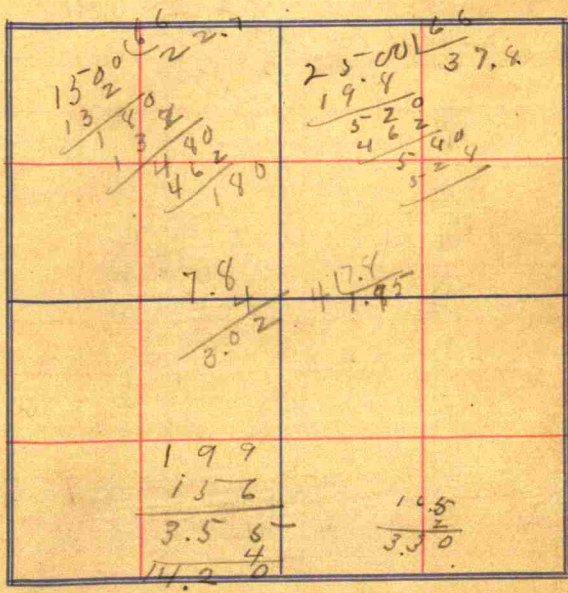 1500 66
132 22.7
180
132
480
462
180
2500 66
198 37.8
520
462
540
524
7.8
4
3.02
4 7.8
1.95
199
156
3.55
4
14.20
16.5
2
3.30